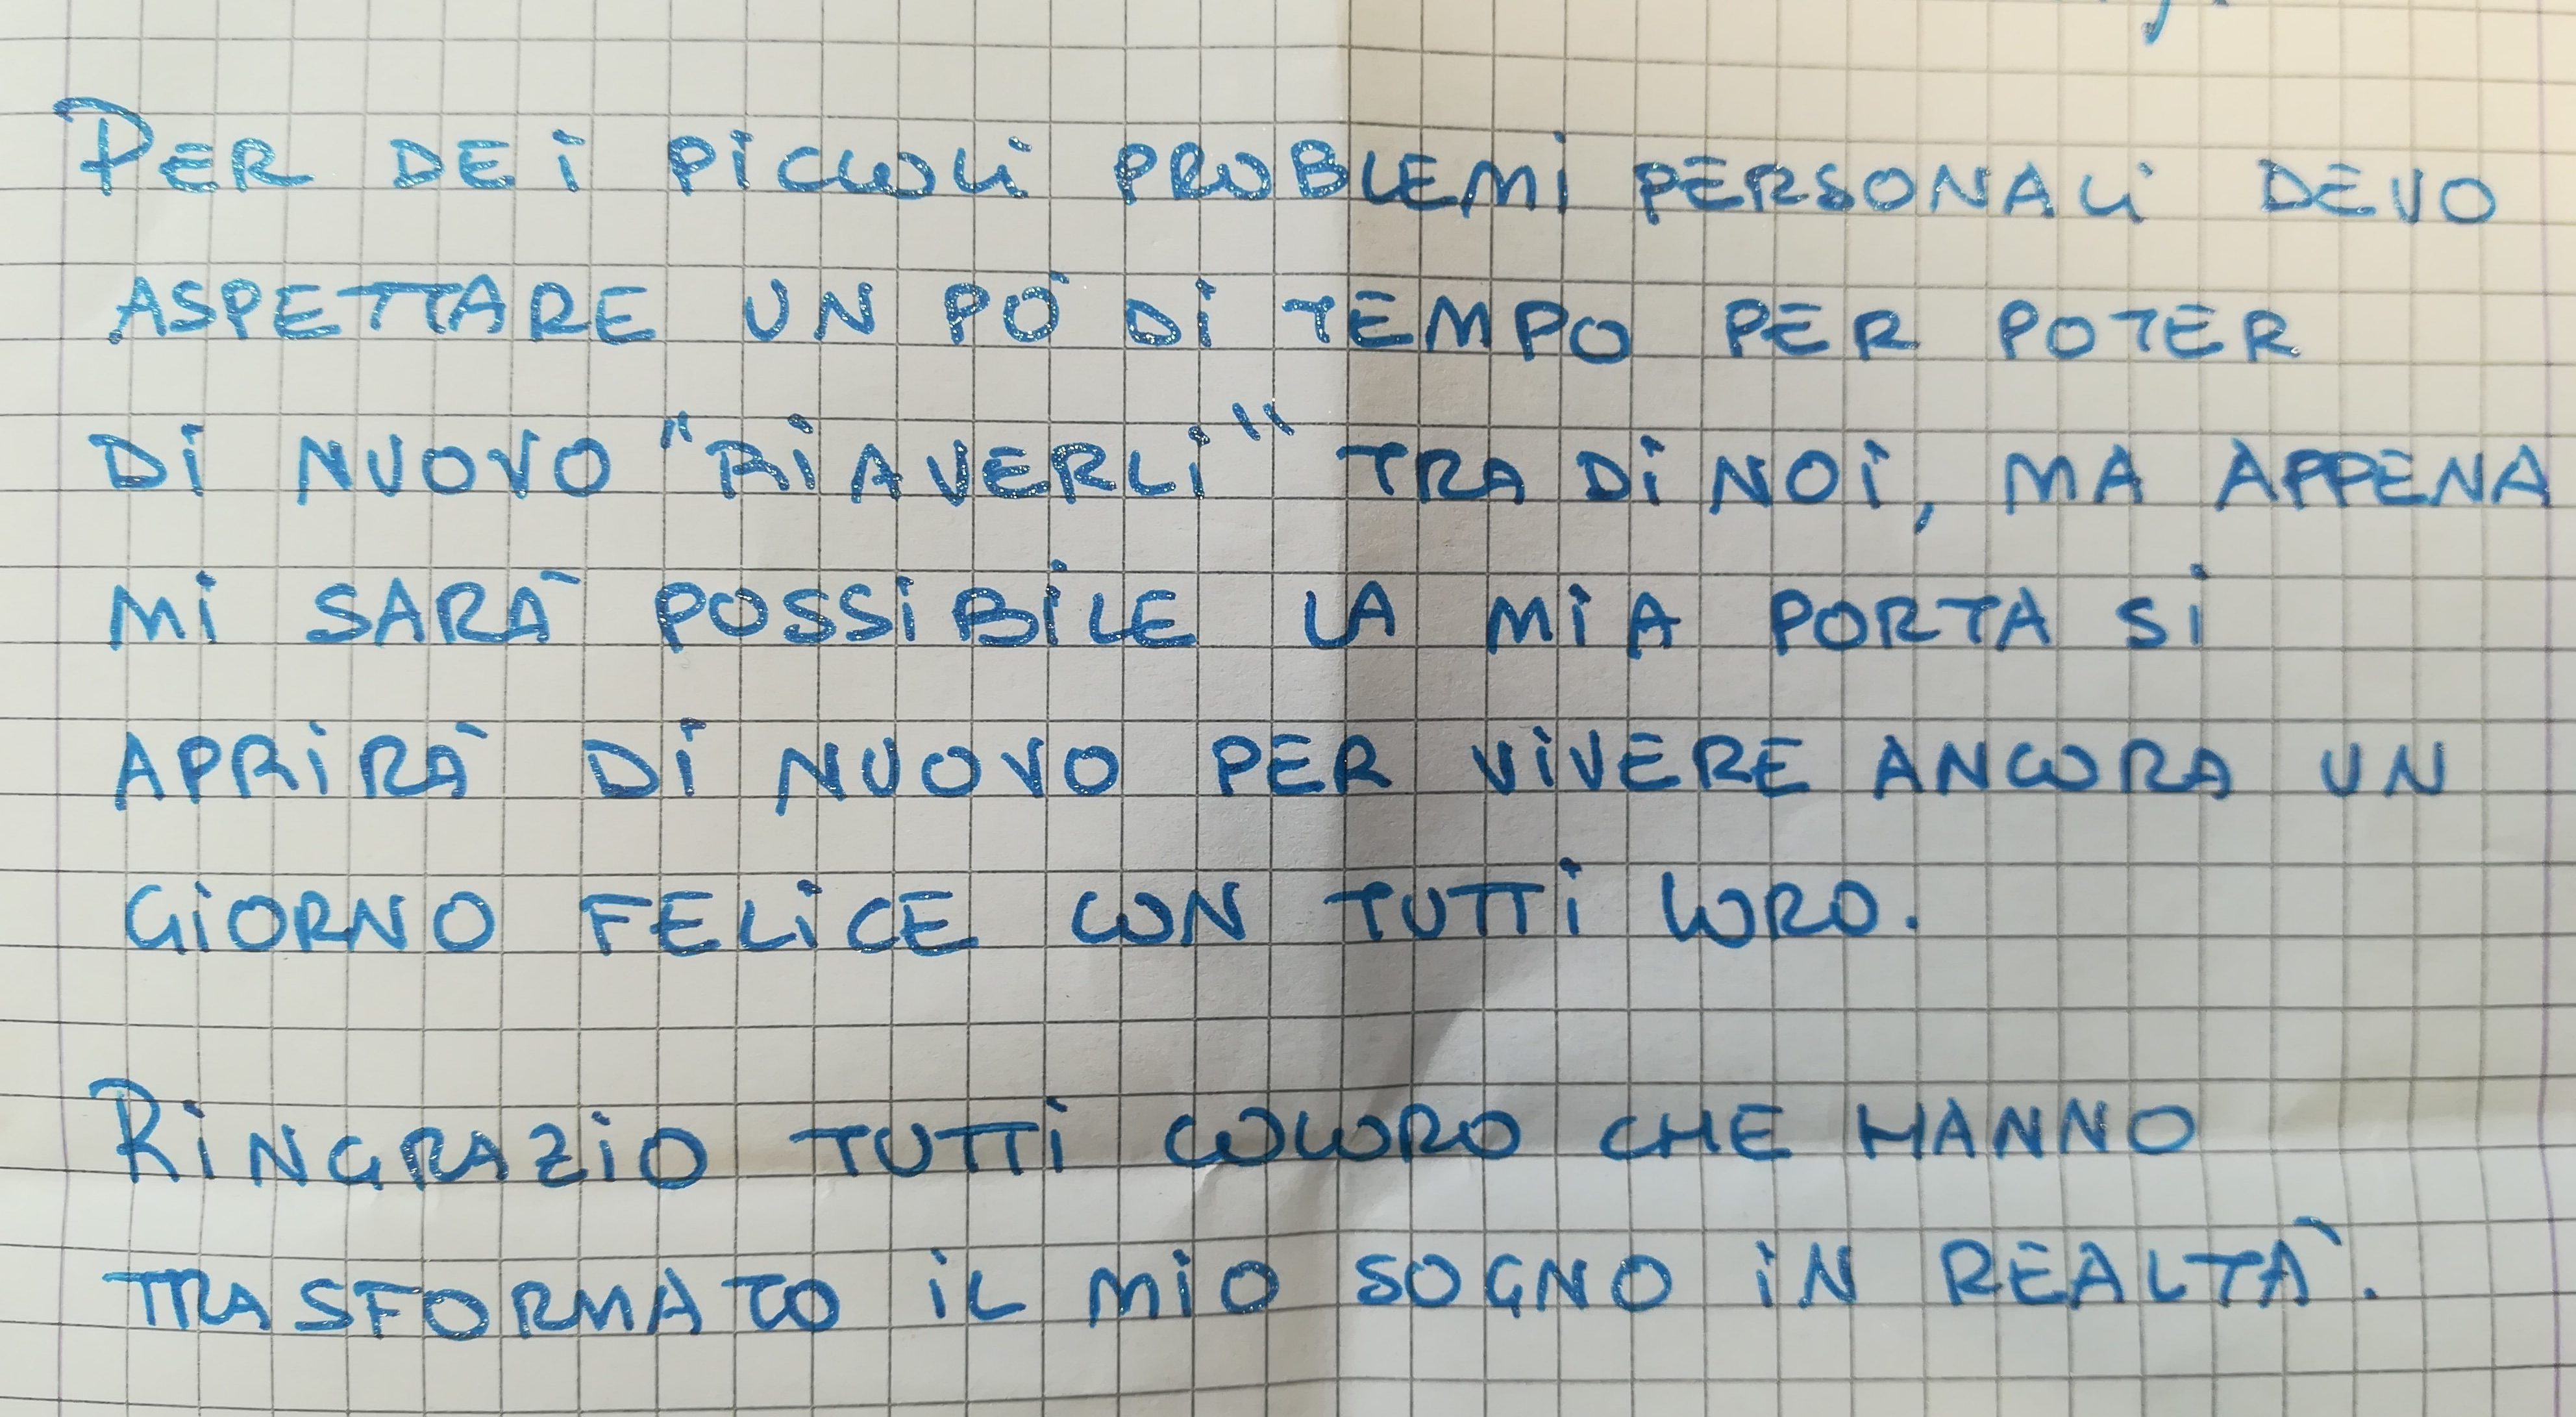 PER DEI PICCOLI PROBLEMI PERSONALI DEVO
ASPETTARE UN PO' DI TEMPO PER POTER
DI NUOVO "RIAVERLI" TRA DI NOI, MA APPENA
MI SARÀ POSSIBILE LA MIA PORTA SI
APRIRÀ DI NUOVO PER VIVERE ANCORA UN
GIORNO FELICE CON TUTTI LORO.
RINGRAZIO TUTTI COLORO CHE HANNO
TRASFORMATO IL MIO SOGNO IN REALTÀ.